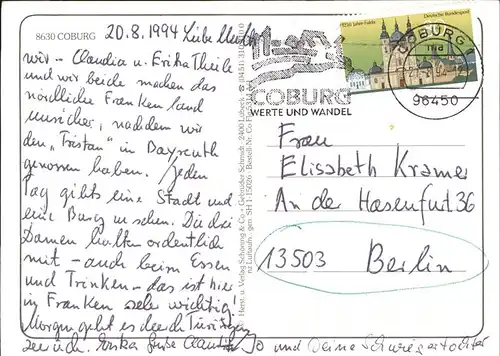 8630 COBURG
20.8.1994 Liebe
wir - Claudia u. Erika Theile
und wir beide machen das
nördliche Frankenland
unsicher, nachdem wir
den „Tristan" in Bayreuth
genossen haben. Jeden
Tag gibts eine Stadt und
eine Burg zu sehen. Die drei
Damen halten ordentlich
mit - auch beim Essen
und Trinken - das ist hier
in Franken sehr wichtig!
Morgen geht es durch
zurück. Erika Claudia Jo und Deine Schwiegertochter
Herst. u. Verlag Schöning & Co. + Gebrüder Schmidt
1250 Jahre Fulda
Deutsche Bundespost
COBURG
WERTE UND WANDEL
COBURG 1
96450
Frau
Elisabeth Kramer
An der Hasenfurt 36
13503 Berlin